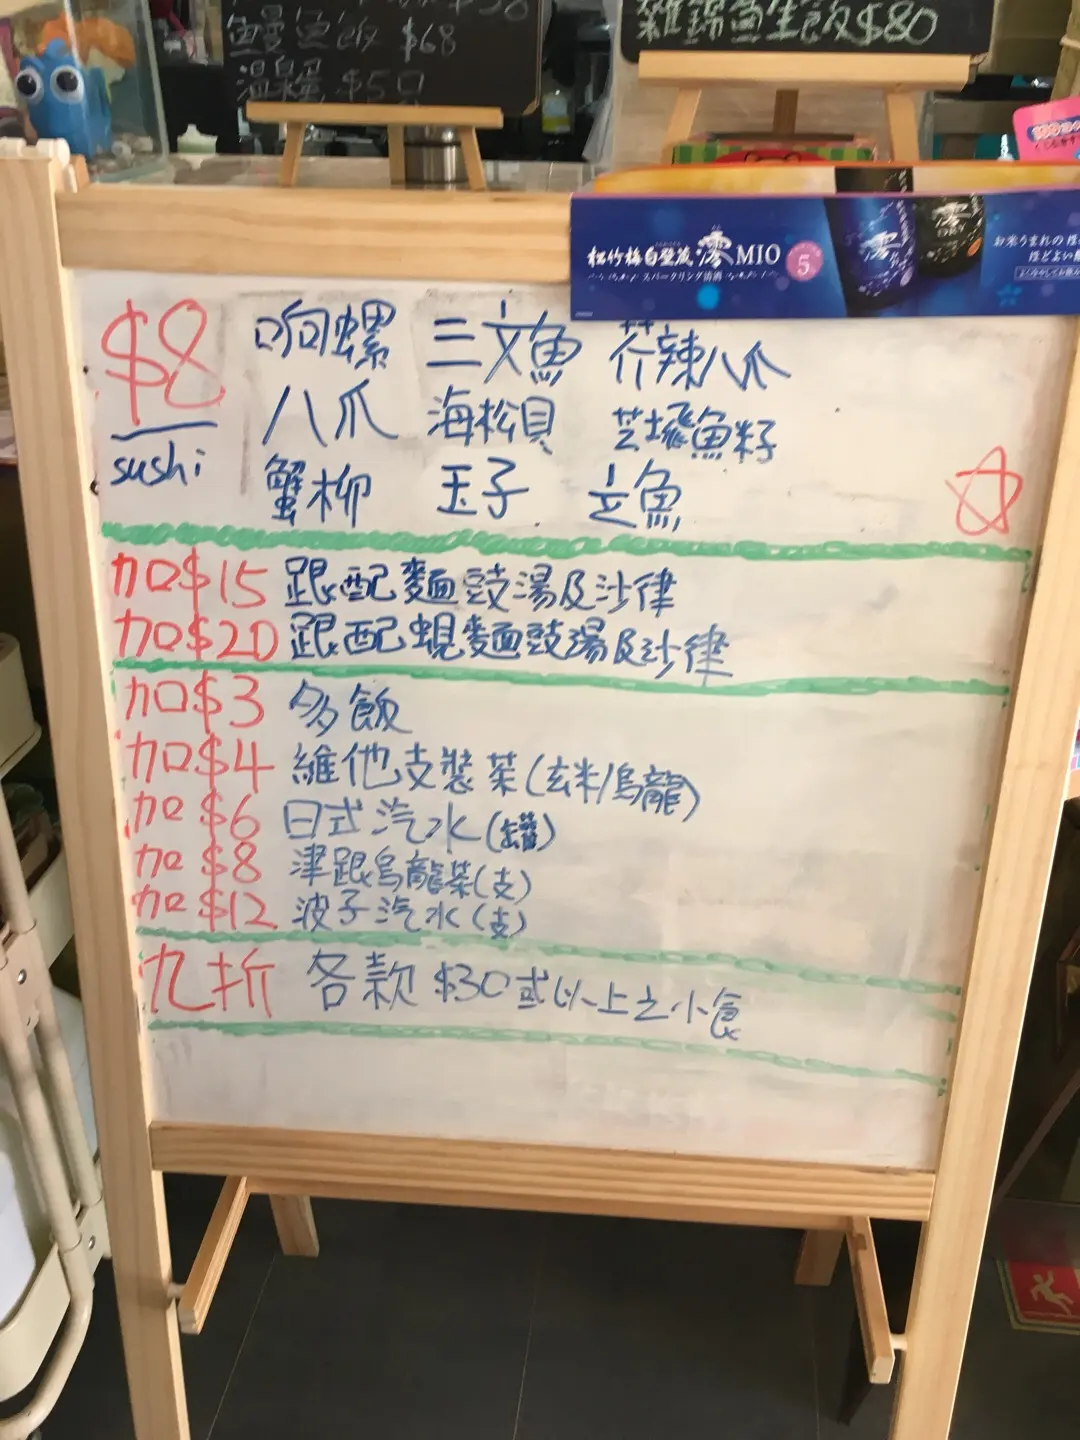 鰻魚飯 $68
溫泉蛋
雜錦魚生飯$80
松竹梅白壁蔵 澪 MIO 5
スパークリング清酒
$8 响螺 三文魚 芥辣八爪
八爪 海松貝 芝堜飛魚籽
sushi 蟹柳 玉子 立魚
加$15 跟配麵豉湯及沙律
加$20 跟配蜆麵豉湯及沙律
加$3 多飯
加$4 維他支裝茶(玄米/烏龍)
加$6 日式汽水(罐)
加$8 津跟烏龍茶(支)
加$12 波子汽水(支)
九折 各款 $30或以上之小食